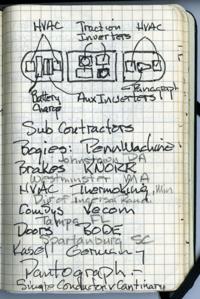 HVAC Traction Inverters HVAC
Battery Charge Aux Inverters Panagraph
Sub Contractors
Bogies: PennMachine
Johnstown PA
Brakes KNORR
Westminster MA
HVAC Thermoking, Min
Div of Ingersol Rand.
Comsys Vecom
Tampa FL
Doors BODE
Spartanburg SC
Kasel Germany
Pantograph -
Single Conductor v Cantinary